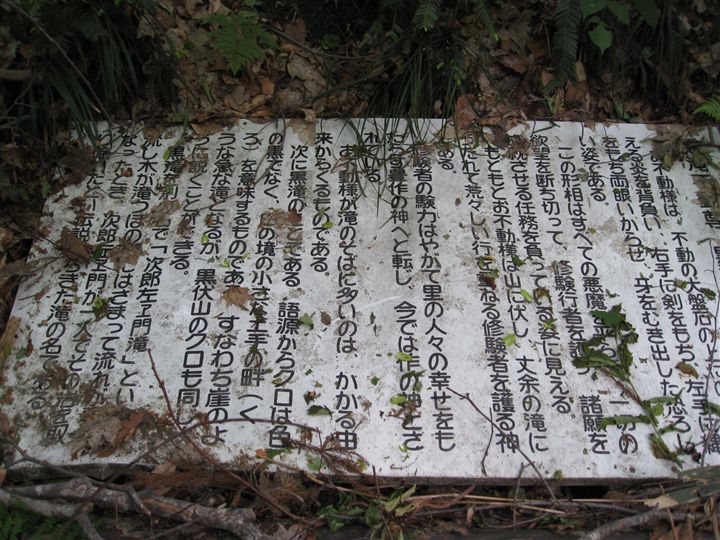 お不動様は、不動の大盤石の上に
える炎を背負い、右手に剣をもち、左手は縄
をもち両眼いからせ、牙をむき出した恐ろし
い姿である
この形相はすべての悪魔を 一切の
欲望を断ち切って、修験行者を護 諸願を
就させる任務を負っている姿に見える。
もともとお不動様は山に伏し、丈余の滝に
うたれて荒々しい行を重ねる修験者を護る神
ある。
験者の験力はやがて里の人々の幸せをも
たらす豊作の神へと転じ、今では作の神とさ
れている。
お不動様が滝のそばに多いのは、かかる由
来からくるものである。
次に黒滝の ことである。語源からクロは色
の黒でなく、 の境の小さな土手の畔(く
ろ)を意味するものであり、すなわち崖のよ
うな急な滝となるが、黒伏山のクロも同じ
ように説くことができる。
黒滝の別 で「次郎左ェ門滝」とい
流れし水が滝つぼの とはざまって流れが
なったとき、次郎左ェ門が一人でその岩を取
り除いたと伝説が きた滝の名である。